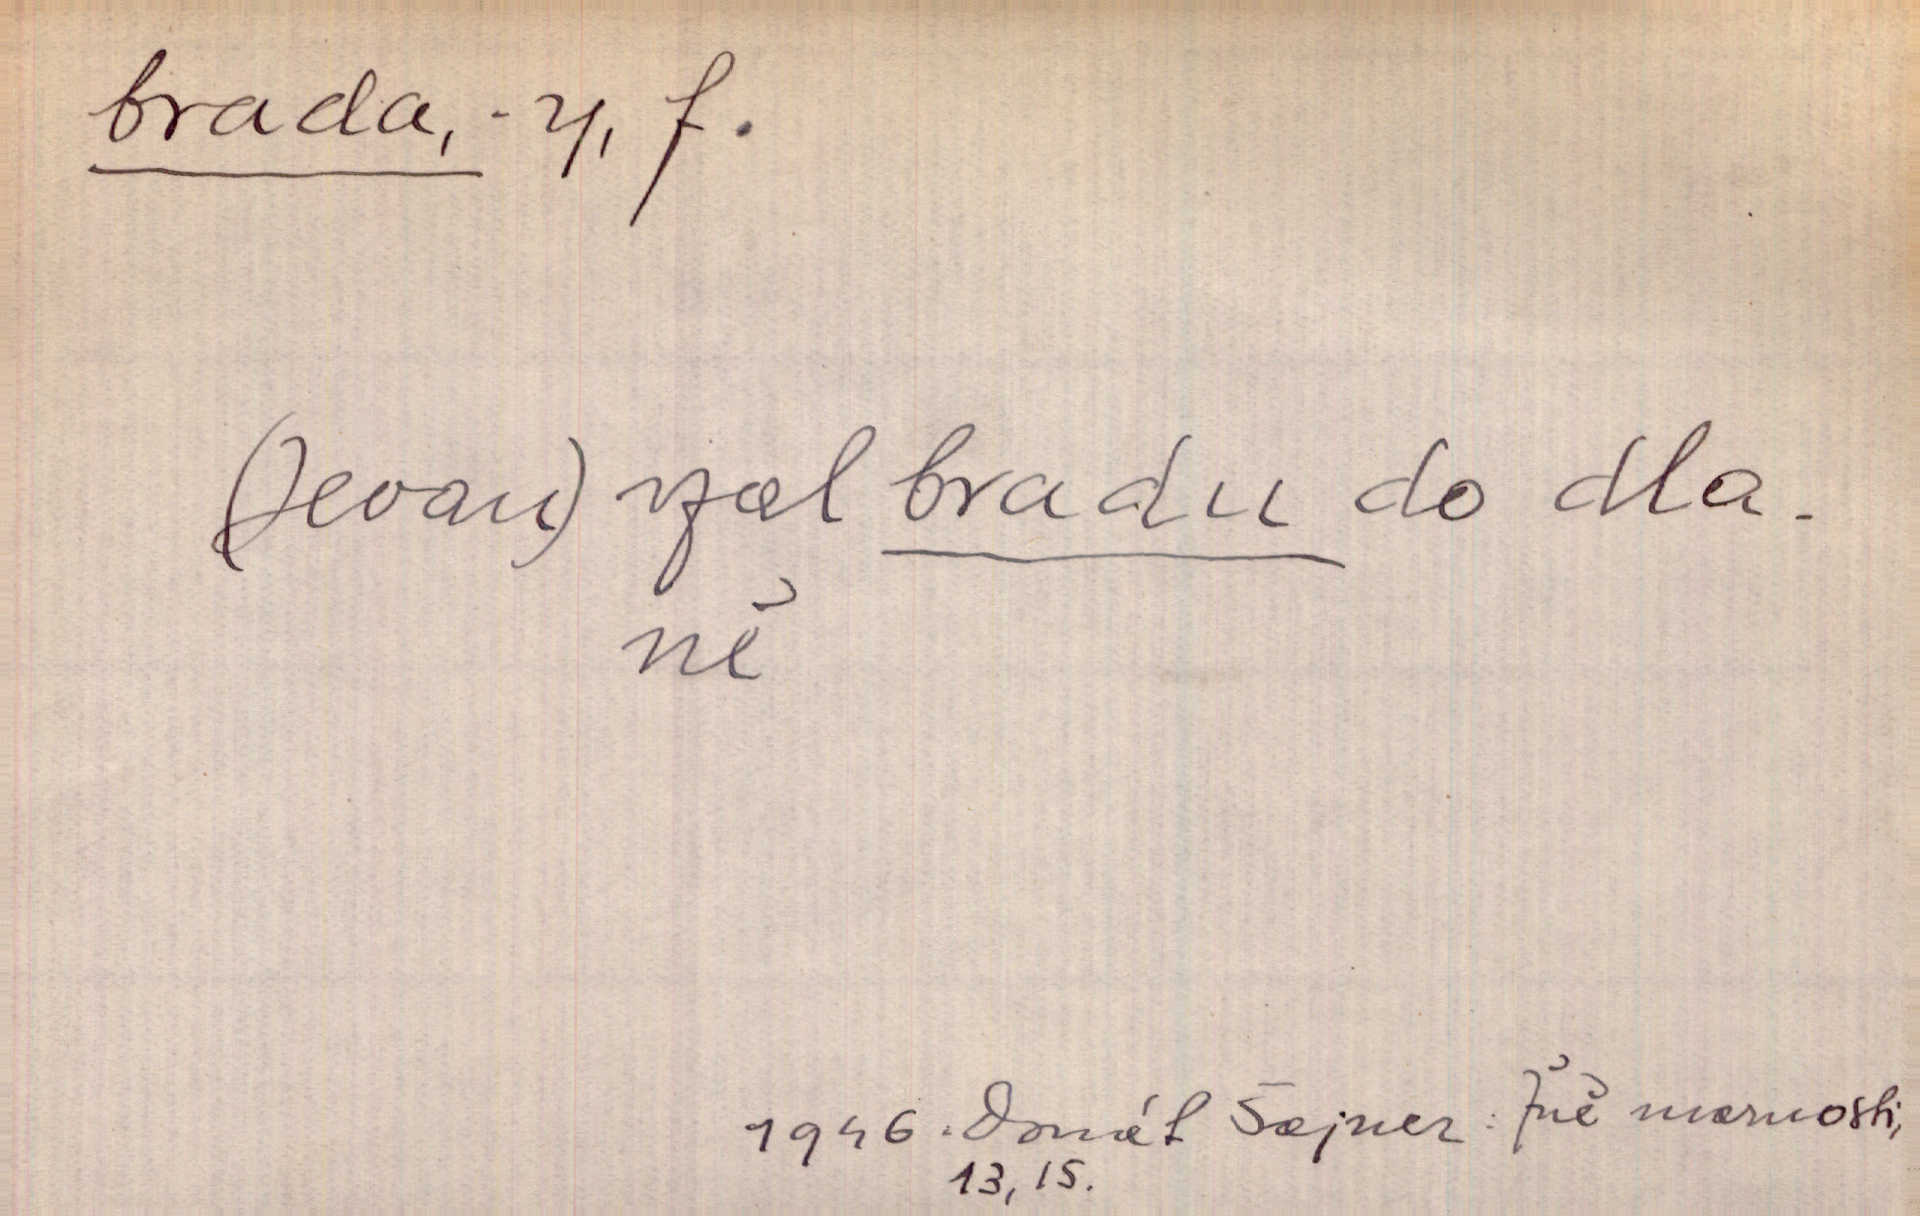 brada, -y, f.
(Jevan) vzal bradu do dla-
ně
1946. Donát Šajner: Žně marnosti,
13, 15.